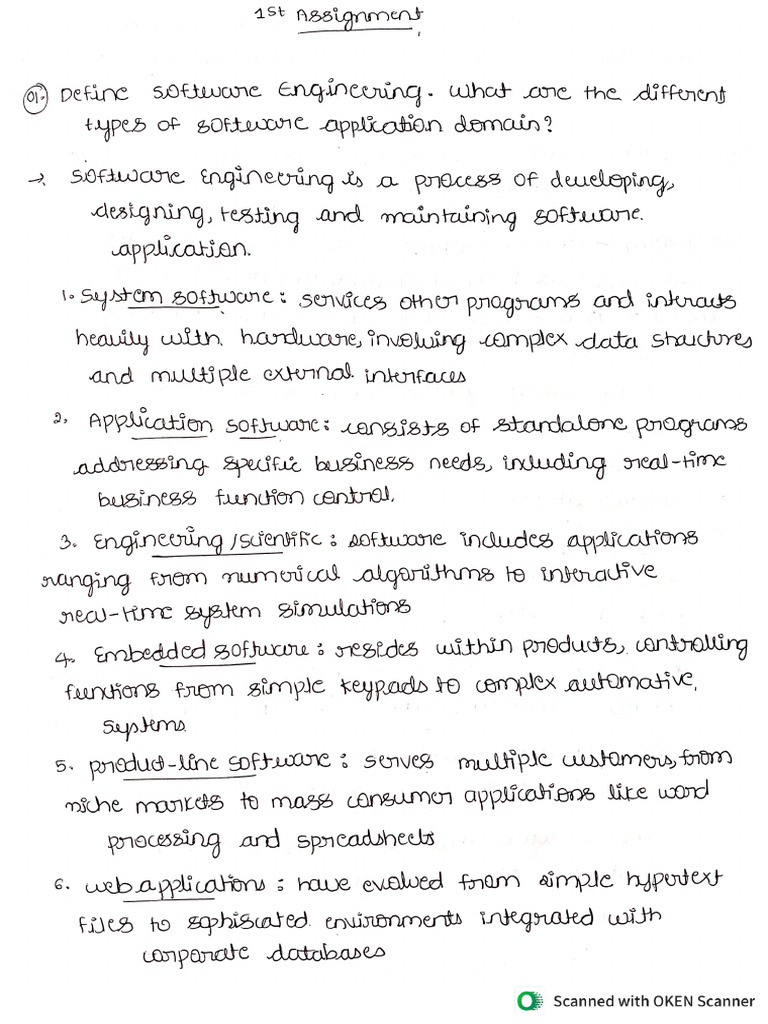 1st Assignment
01. Define Software Engineering. What are the different
types of software application domain?
→ Software Engineering is a process of developing,
designing, testing and maintaining software.
application.
1. System software: services other programs and interacts
heavily with hardware, involving complex data structures
and multiple external interfaces
2. Application software: consists of standalone programs
addressing specific business needs, including real-time
business function control.
3. Engineering/scientific: software includes applications
ranging from numerical algorithms to interactive
real-time system simulations
4. Embedded software: resides within products, controlling
functions from simple keypads to complex automative.
systems.
5. product-line software: serves multiple customers, from
niche markets to mass consumer applications like word
processing and spreadsheets
6. web applications: have evolved from simple hypertext
files to sophiscated environments integrated with
corporate databases
Scanned with OKEN Scanner